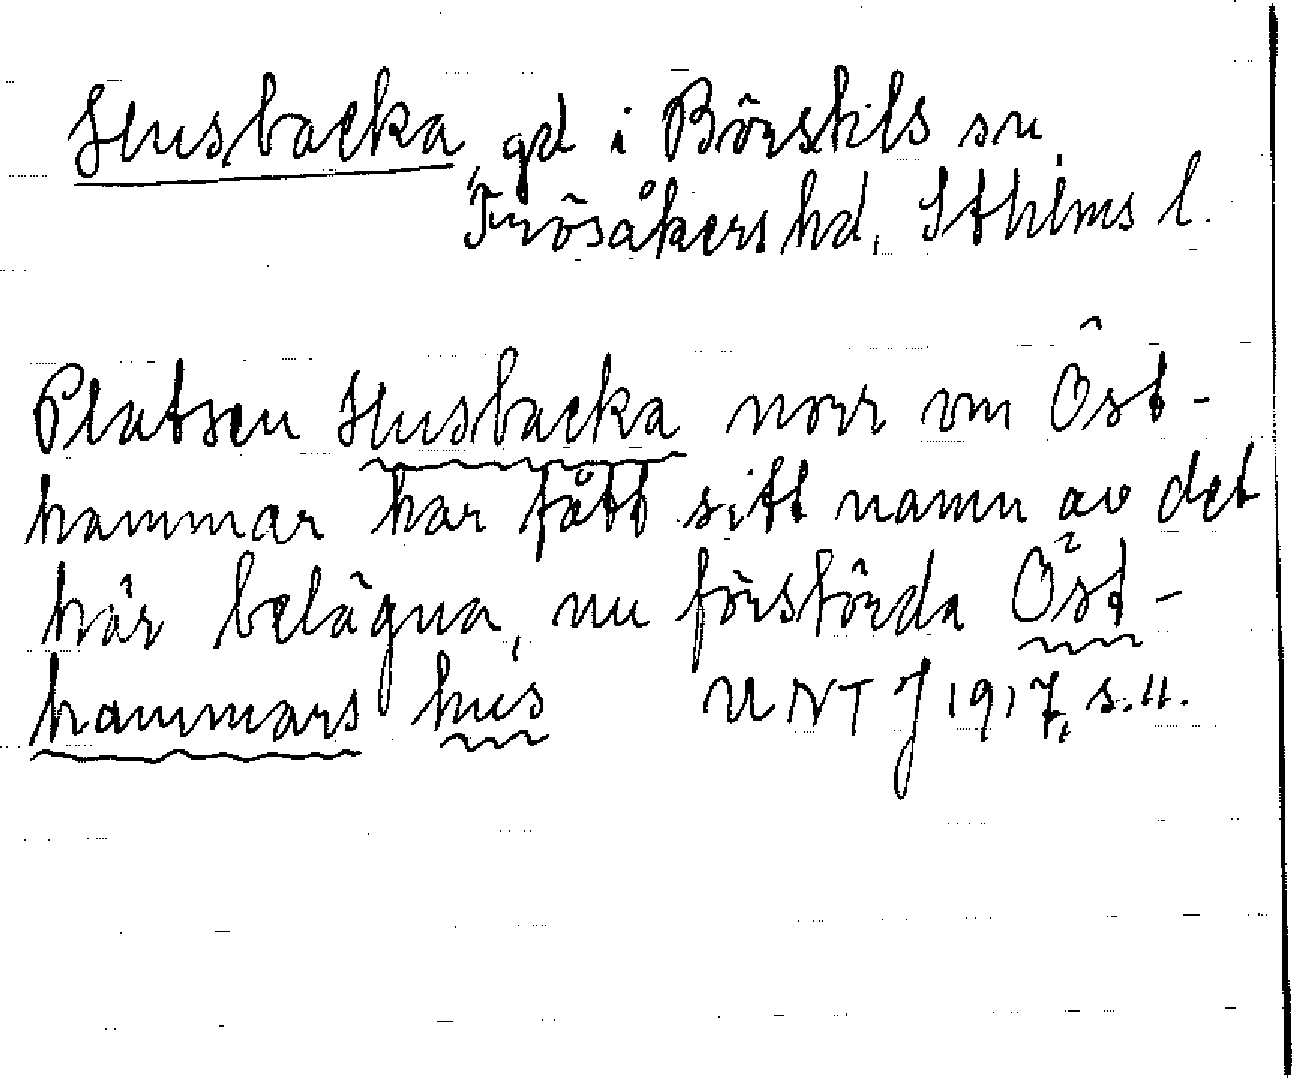 Husbacka, gd i Börstils sn,
Frösåkers hd, Sthlms l.
Platsen Husbacka norr om Öst-
hammar har fått sitt namn av det
här belägna, nu förstörda Öst-
hammars hus UNTJ 1917, s. 11.